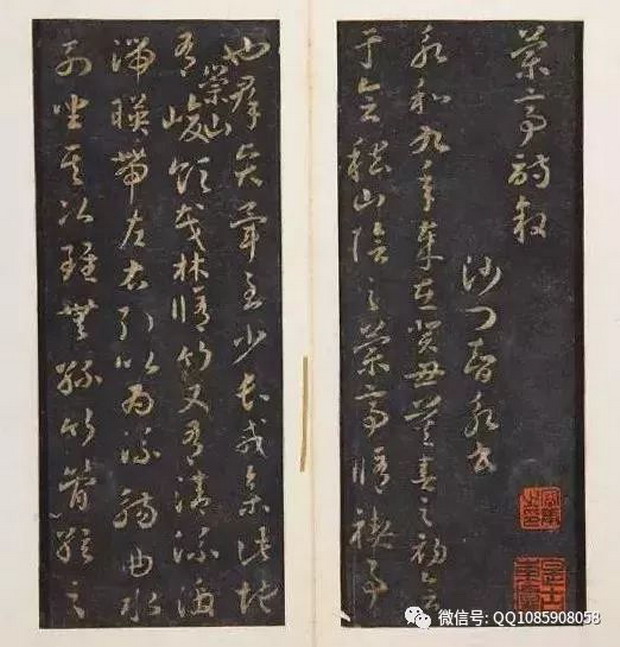 蘭亭詩叙
沙門智永書
永和九年歲在癸丑暮春之初會
于會稽山陰之蘭亭脩禊事
也群賢畢至少長咸集此地
有崇山峻領茂林脩竹又有清流激
湍暎帶左右引以為流觴曲水
列坐其次雖無絲竹管絃之
微信号: QQ1085908058